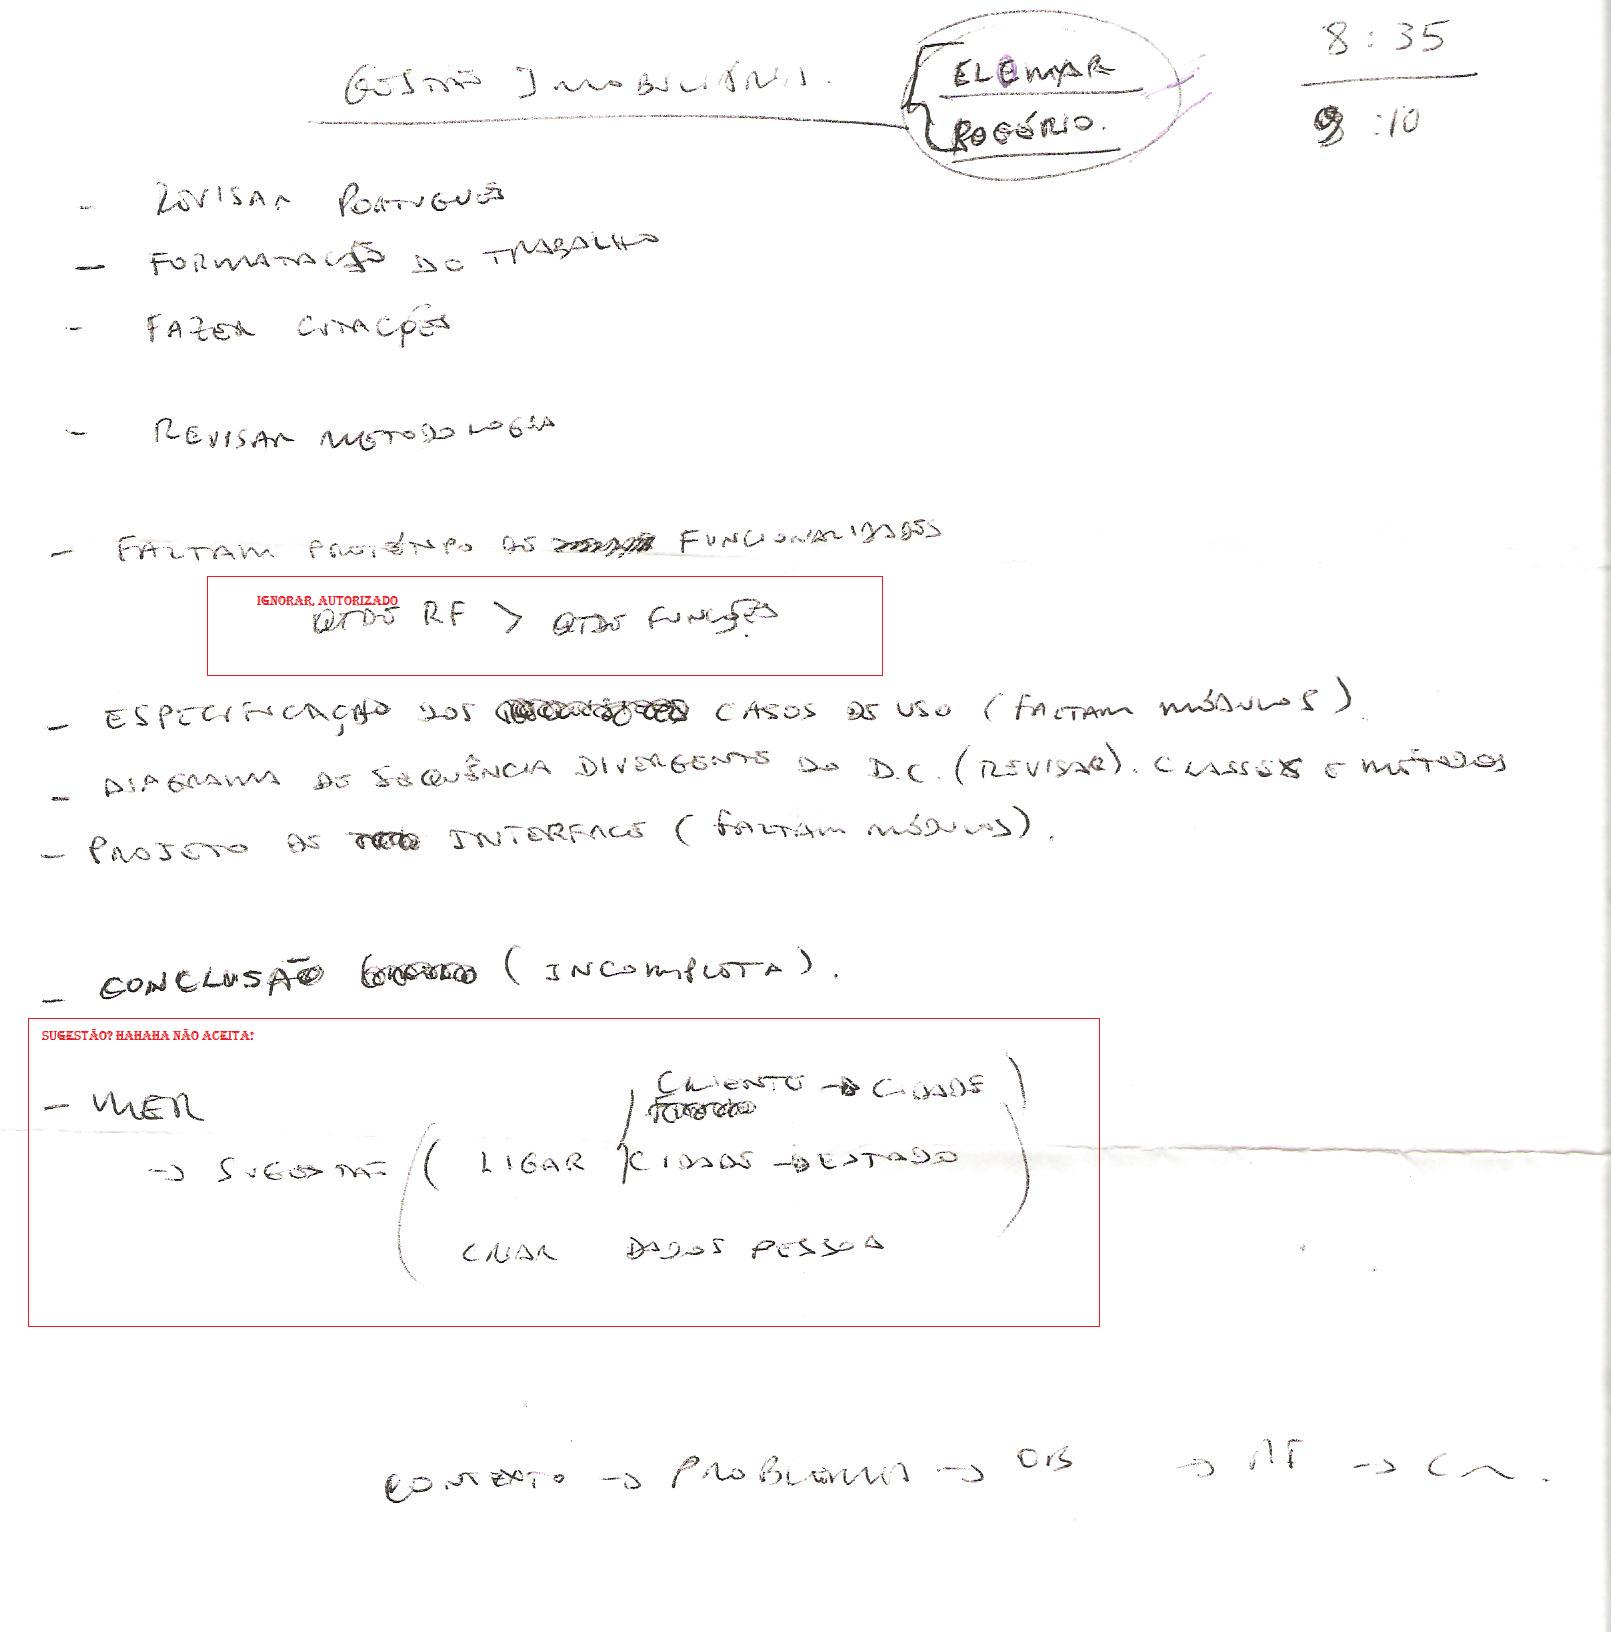 GESTÃO IMOBILIÁRIA.
ELEMAR
ROGÉRIO.
8:35
9:10
- REVISAR PORTUGUÊS
- FORMATAÇÃO DO TRABALHO
- FAZER CITAÇÕES
- REVISAR METODOLOGIA
- FALTAM PROTÓTIPO DE FUNCIONALIDADES
IGNORAR, AUTORIZADO
QTDE RF > QTDE FUNÇÕES
- ESPECIFICAÇÃO DOS CASOS DE USO (FALTAM MÓDULOS).
- DIAGRAMA DE SEQUÊNCIA DIVERGENTE DO D.C. (REVISAR). CLASSES E MÉTODOS
- PROJETO DE INTERFACE (FALTAM MÓDULOS).
- CONCLUSÃO (INCOMPLETA).
SUGESTÃO? HAHAHA NÃO ACEITA!
- MER
CLIENTE → CIDADE
→ SUGESTÃO ( LIGAR CIDADE → ESTADO
CRIAR DADOS PESSOA
CONTEXTO → PROBLEMA → OB →